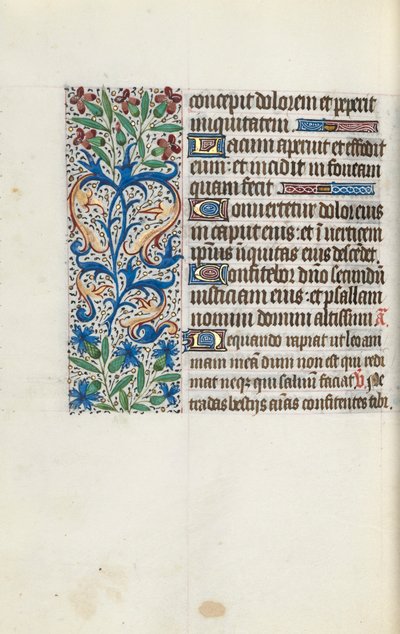 concepit dolorem et peperit
iniquitatem.
Lacum aperuit et effodit
eum: et incidit in foueam
quam fecit.
Conuertetur dolor eius
in caput eius: et ī verticem
ipīus iniquitas eius descēdet.
Confitebor dnō secundū
iusticiam eius: et psallam
nomini domini altissimi. A
Nequando rapiat ut leo ani
mam meā dum non est qui redi
mat neqʒ qui saluū faciat. V Ne
tradas bestijs aīas confitentes tibi.